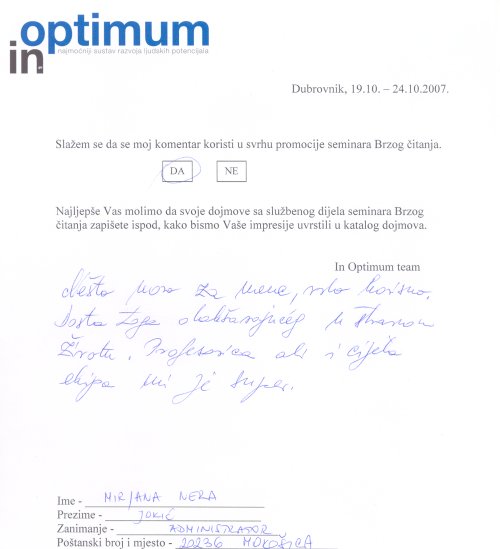 in optimum
najmoćniji sustav razvoja ljudskih potencijala
Dubrovnik, 19.10. – 24.10.2007.
Slažem se da se moj komentar koristi u svrhu promocije seminara Brzog čitanja.
DA NE
Najljepše Vas molimo da svoje dojmove sa službenog dijela seminara Brzog
čitanja zapišete ispod, kako bismo Vaše impresije uvrstili u katalog dojmova.
In Optimum team
Nešto novo za mene, vrlo korisno.
Dosta toga olakšavajućeg u
životu. Profesorica ali i cijela
ekipa mi je super.
Ime - MIRJANA NERA
Prezime - JOKIĆ
Zanimanje - ADMINISTRATOR
Poštanski broj i mjesto - 20236 MOKOŠICA